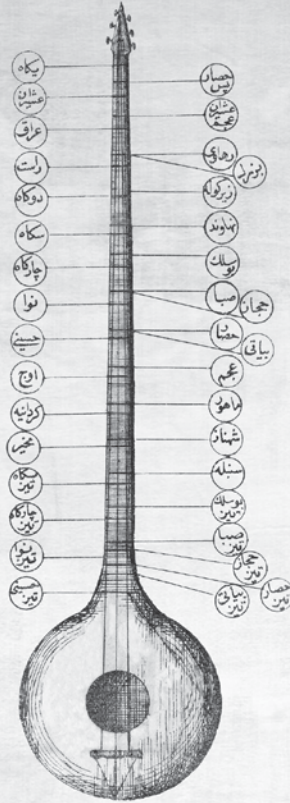 یکاه
عشیران
عراق
راست
دوکاه
سکاه
چارکاه
نوا
حسینی
اوج
کردانیه
محیر
سکاه
تیز
چارکاه
تیز
نوا
تیز
حسینی
تیز
حصار
پس
عشیران
عجم
رهاوی
زیرکوله
نهاوند
بوسلك
صبا
حجاز
حصار
بیاتی
عجم
ماهور
شهناز
سنبله
بوسلك
تیز
صبا
تیز
حجاز
تیز
حصار
تیز
بیاتی
تیز